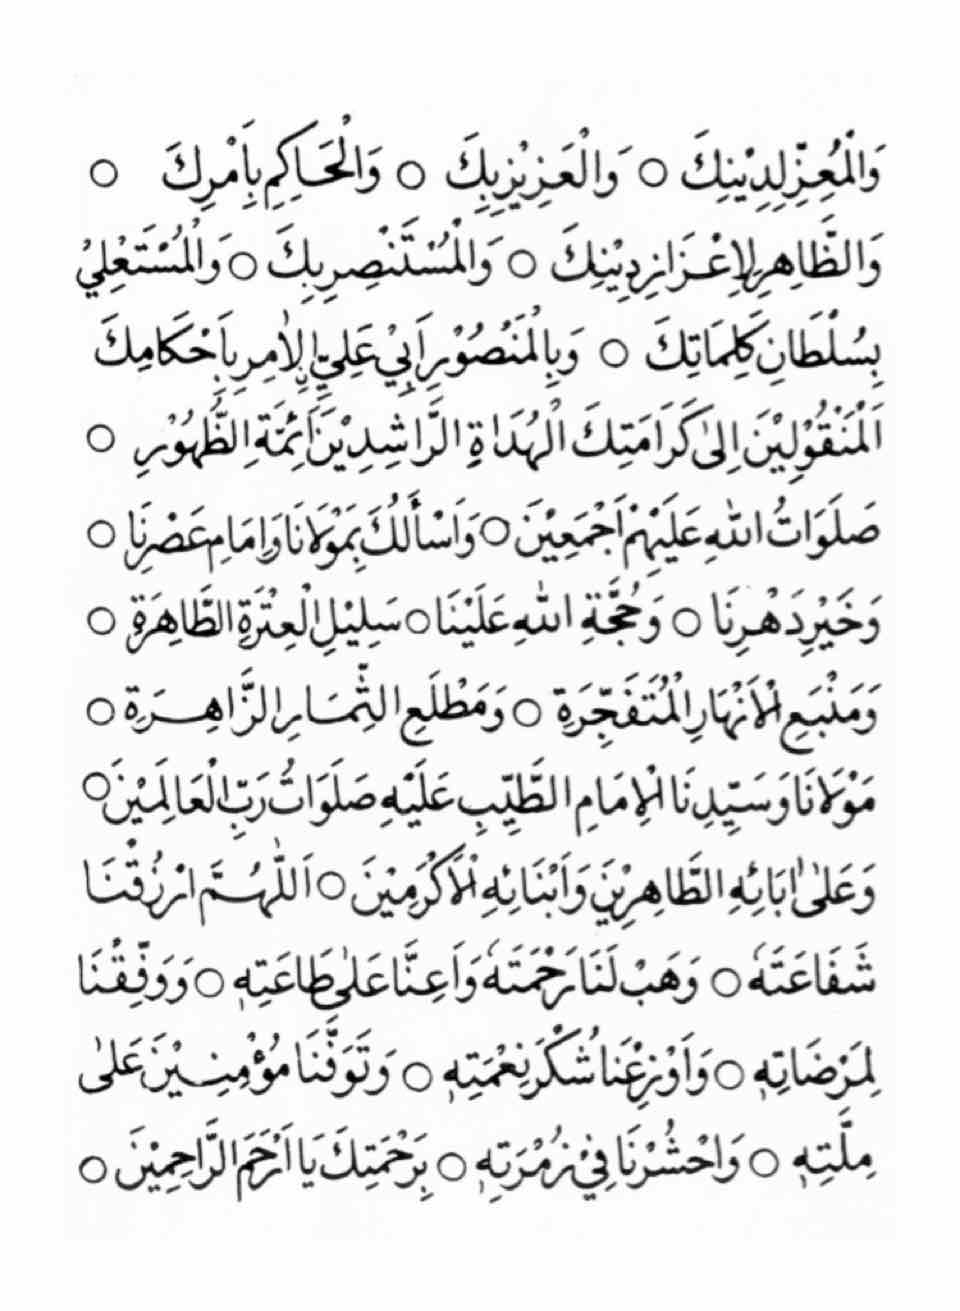 وَالْمُعِزِّ لِدِيْنِكَ ○ وَالْعَزِيْزِ بِكَ ○ وَالْحَاكِمِ بِاَمْرِكَ ○
وَالظَّاهِرِ لِاِعْزَازِ دِيْنِكَ ○ وَالْمُسْتَنْصِرِ بِكَ ○ وَالْمُسْتَعْلِيْ
بِسُلْطَانِ كَلِمَاتِكَ ○ وَبِالْمَنْصُوْرِ اَبِيْ عَلِيِّ اِلْاٰمِرِ بِاَحْكَامِكَ
اَلْمَنْقُوْلِيْنَ اِلىٰ كَرَامَتِكَ الْهُدَاةِ الرَّاشِدِيْنَ اَئِمَّةِ الظُّهُوْرِ ○
صَلَوَاتُ اللهِ عَلَيْهِمْ اَجْمَعِيْنَ ○ وَاَسْأَلُكَ بِمَوْلَانَا وَاِمَامِ عَصْرِنَا ○
وَخَيْرِ دَهْرِنَا ○ وَحُجَّةِ اللهِ عَلَيْنَا ○ سَلِيْلِ الْعِتْرَةِ الطَّاهِرَةِ ○
وَمَنْبَعِ الْاَنْهَارِ الْمُتَفَجِّرَةِ ○ وَمَطْلَعِ الثِّمَارِ الزَّاهِرَةِ ○
مَوْلَانَا وَسَيِّدِنَا الْاِمَامِ الطَّيِّبِ عَلَيْهِ صَلَوَاتُ رَبِّ الْعَالَمِيْنَ ○
وَعَلىٰ اٰبَائِهِ الطَّاهِرِيْنَ وَاَبْنَائِهِ الْاَكْرَمِيْنَ ○ اَللّٰهُمَّ ارْزُقْنَا
شَفَاعَتَهٗ ○ وَهَبْ لَنَا رَحْمَتَهٗ وَاَعِنَّا عَلىٰ طَاعَتِهٖ ○ وَوَفِّقْنَا
لِمَرْضَاتِهٖ ○ وَاَوْزِعْنَا شُكْرَ نِعْمَتِهٖ ○ وَتَوَفَّنَا مُؤْمِنِيْنَ عَلىٰ
مِلَّتِهٖ ○ وَاحْشُرْنَا فِيْ زُمْرَتِهٖ ○ بِرَحْمَتِكَ يَا اَرْحَمَ الرَّاحِمِيْنَ ○